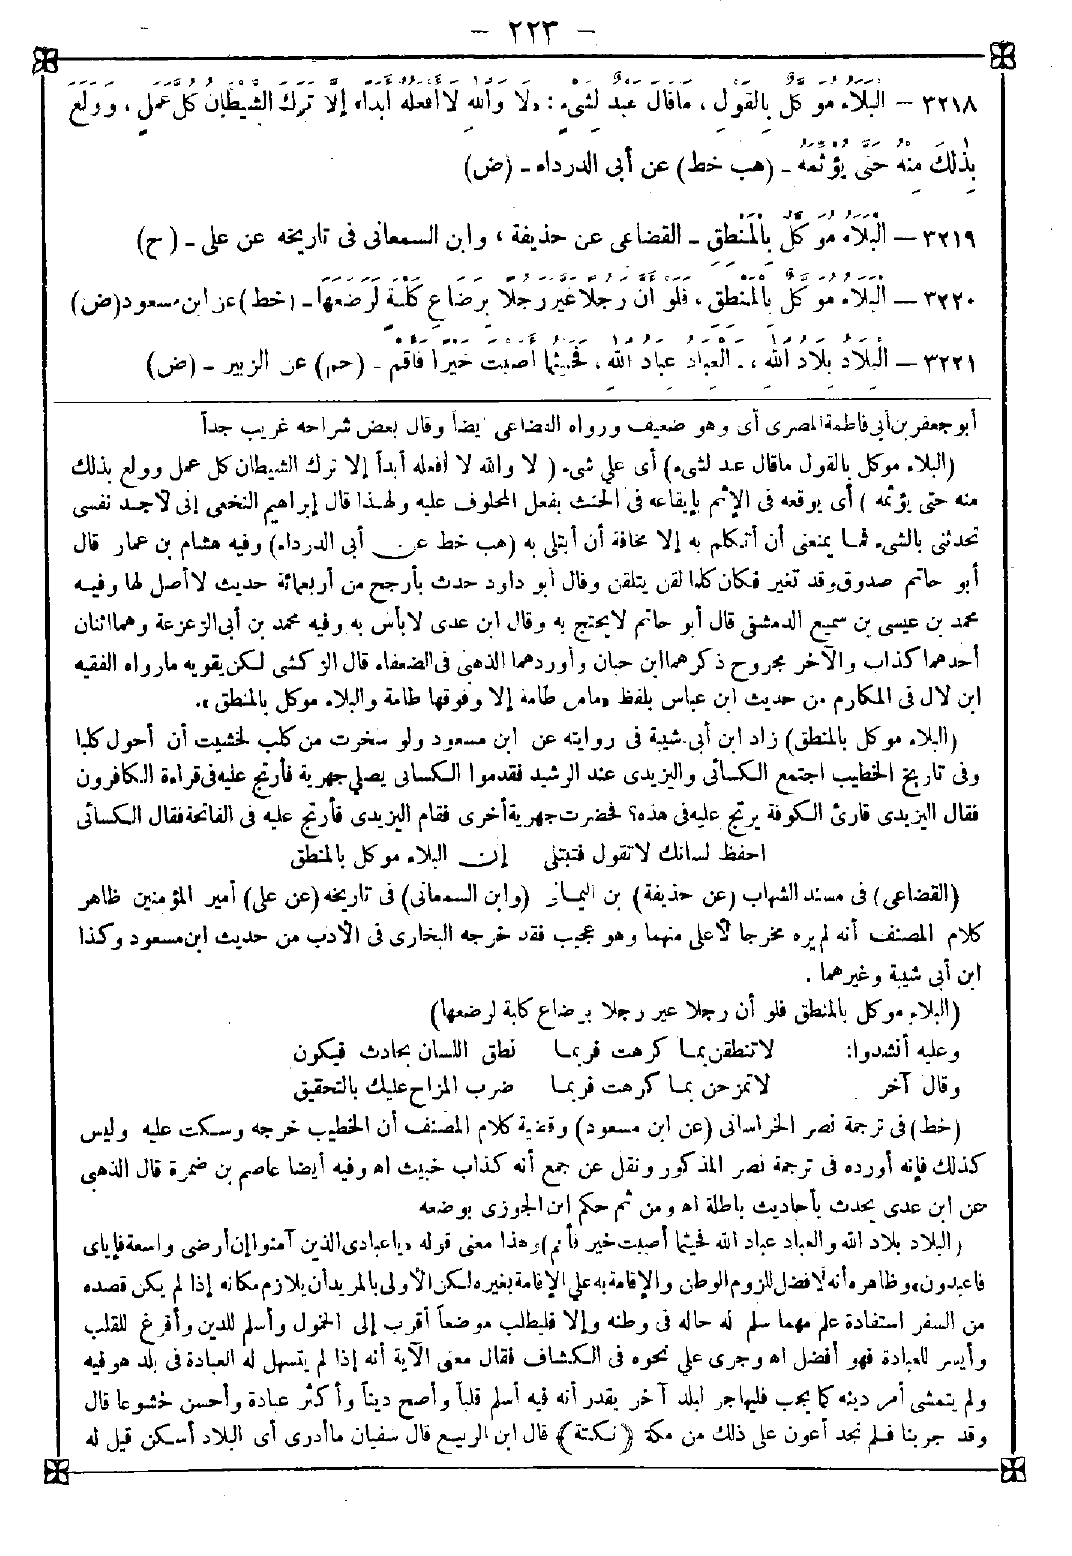 - ٢٢٣ -
٣٢١٨ - الْبَلَاءُ مُوَكَّلٌ بِالْقَوْلِ، مَا قَالَ عَبْدٌ لِشَيْءٍ: «لَا وَاللهِ لَا أَفْعَلُهُ أَبَدًا» إِلَّا تَرَكَ الشَّيْطَانُ كُلَّ عَمَلٍ، وَوَلَعَ
بِذَلِكَ مِنْهُ حَتَّى يُؤَثِّمَهُ - (هب خط) عن أبى الدرداء - (ض)
٣٢١٩ - الْبَلَاءُ مُوَكَّلٌ بِالْمَنْطِقِ - القضاعى عن حذيفة، وابن السمعانى فى تاريخه عن على - (ح)
٣٢٢٠ - الْبَلَاءُ مُوَكَّلٌ بِالْمَنْطِقِ، فَلَوْ أَنَّ رَجُلًا عَيَّرَ رَجُلًا بِرَضَاعِ كَلْبَةٍ لَرَضَعَهَا - (خط) عن ابن مسعود (ض)
٣٢٢١ - الْبِلَادُ بِلَادُ اللهِ، وَالْعِبَادُ عِبَادُ اللهِ، فَحَيْثُمَا أَصَبْتَ خَيْرًا فَأَقِمْ - (حم) عن الزبير - (ض)
أبو جعفر بن أبى فاطمة المصرى أى وهو ضعيف ورواه القضاعى أيضاً وقال بعض شراحه غريب جداً
(البلاء موكل بالقول ماقال عبد لشىء) أى على شىء (لا والله لا أفعله أبداً إلا ترك الشيطان كل عمل وولع بذلك
منه حتى يؤثمه) أى يوقعه فى الإثم بإيقاعه فى الحنث بفعل المحلوف عليه ولهذا قال إبراهيم النخعى إنى لأجد نفسى
تحدثنى بالشىء فما يمنعنى أن أتكلم به إلا مخافة أن أبتلى به (هب خط عن أبى الدرداء) وفيه هشام بن عمار قال
أبو حاتم صدوق وقد تغير فكان كلما لقن يتلقن وقال أبو داود حدث بأرجح من أربعمائة حديث لاأصل لها وفيه
محمد بن عيسى بن سميع الدمشقى قال أبو حاتم لايحتج به وقال ابن عدى لابأس به وفيه محمد بن أبى الزعزعة وهما اثنان
أحدهما كذاب والآخر مجروح ذكرهما ابن حبان وأوردهما الذهبى فى الضعفاء قال الزركشى لكن يقويه مارواه الفقيه
ابن لال فى المكارم من حديث ابن عباس بلفظ «مامن طامة إلا وفوقها طامة والبلاء موكل بالمنطق».
(البلاء موكل بالمنطق) زاد ابن أبى شيبة فى روايته عن ابن مسعود ولو سخرت من كلب لخشيت أن أحول كلبا
وفى تاريخ الخطيب اجتمع الكسائى واليزيدى عند الرشيد فقدموا الكسائى يصلى جهرية فأرتج عليه فى قراءة الكافرون
فقال اليزيدى قارئ الكوفة يرتج عليه فى هذه؟ فحضرت جهرية أخرى فقام اليزيدى فأرتج عليه فى الفاتحة فقال الكسائى
احفظ لسانك لاتقول فتبتلى    إن البلاء موكل بالمنطق
(القضاعى) فى مسند الشهاب (عن حذيفة) بن اليمان (وابن السمعانى) فى تاريخه (عن على) أمير المؤمنين ظاهر
كلام المصنف أنه لم يره مخرجا لأعلى منهما وهو عجيب فقد خرجه البخارى فى الأدب من حديث ابن مسعود وكذا
ابن أبى شيبة وغيرهما.
(البلاء موكل بالمنطق فلو أن رجلا عير رجلا برضاع كلبة لرضعها)
وعليه أنشدوا:    لاتنطقن بما كرهت فربما    نطق اللسان بحادث فيكون
وقال آخر    لاتمزحن بما كرهت فربما    ضرب المزاح عليك بالتحقيق
(خط) فى ترجمة نصر الخراسانى (عن ابن مسعود) وقضية كلام المصنف أن الخطيب خرجه وسكت عليه وليس
كذلك فإنه أورده فى ترجمة نصر المذكور ونقل عن جمع أنه كذاب خبيث اه وفيه أيضا عاصم بن ضمرة قال الذهبى
عن ابن عدى يحدث بأحاديث باطلة اه ومن ثم حكم ابن الجوزى بوضعه
(البلاد بلاد الله والعباد عباد الله فحيثما أصبت خير فأقم) وهذا معنى قوله «ياعبادى الذين آمنوا إن أرضى واسعة فإياى
فاعبدون» وظاهره أنه لافضل للزوم الوطن والإقامة به على الإقامة بغيره لكن الأولى بالمريد أن يلازم مكانه إذا لم يكن قصده
من السفر استفادة علم مهما سلم له حاله فى وطنه وإلا فليطلب موضعاً أقرب إلى الخمول وأسلم للدين وأفرغ للقلب
وأيسر للعبادة فهو أفضل اه وجرى على نحوه فى الكشاف فقال معنى الآية أنه إذا لم يتسهل له العبادة فى بلد هو فيه
ولم يتمشى أمر دينه كما يجب فليهاجر لبلد آخر يقدر أنه فيه أسلم قلباً وأصح ديناً وأكثر عبادة وأحسن خشوعا قال
وقد جربنا فلم نجد أعون على ذلك من مكة (نكتة) قال ابن الربيع قال سفيان ماأدرى أى البلاد أسكن قيل له